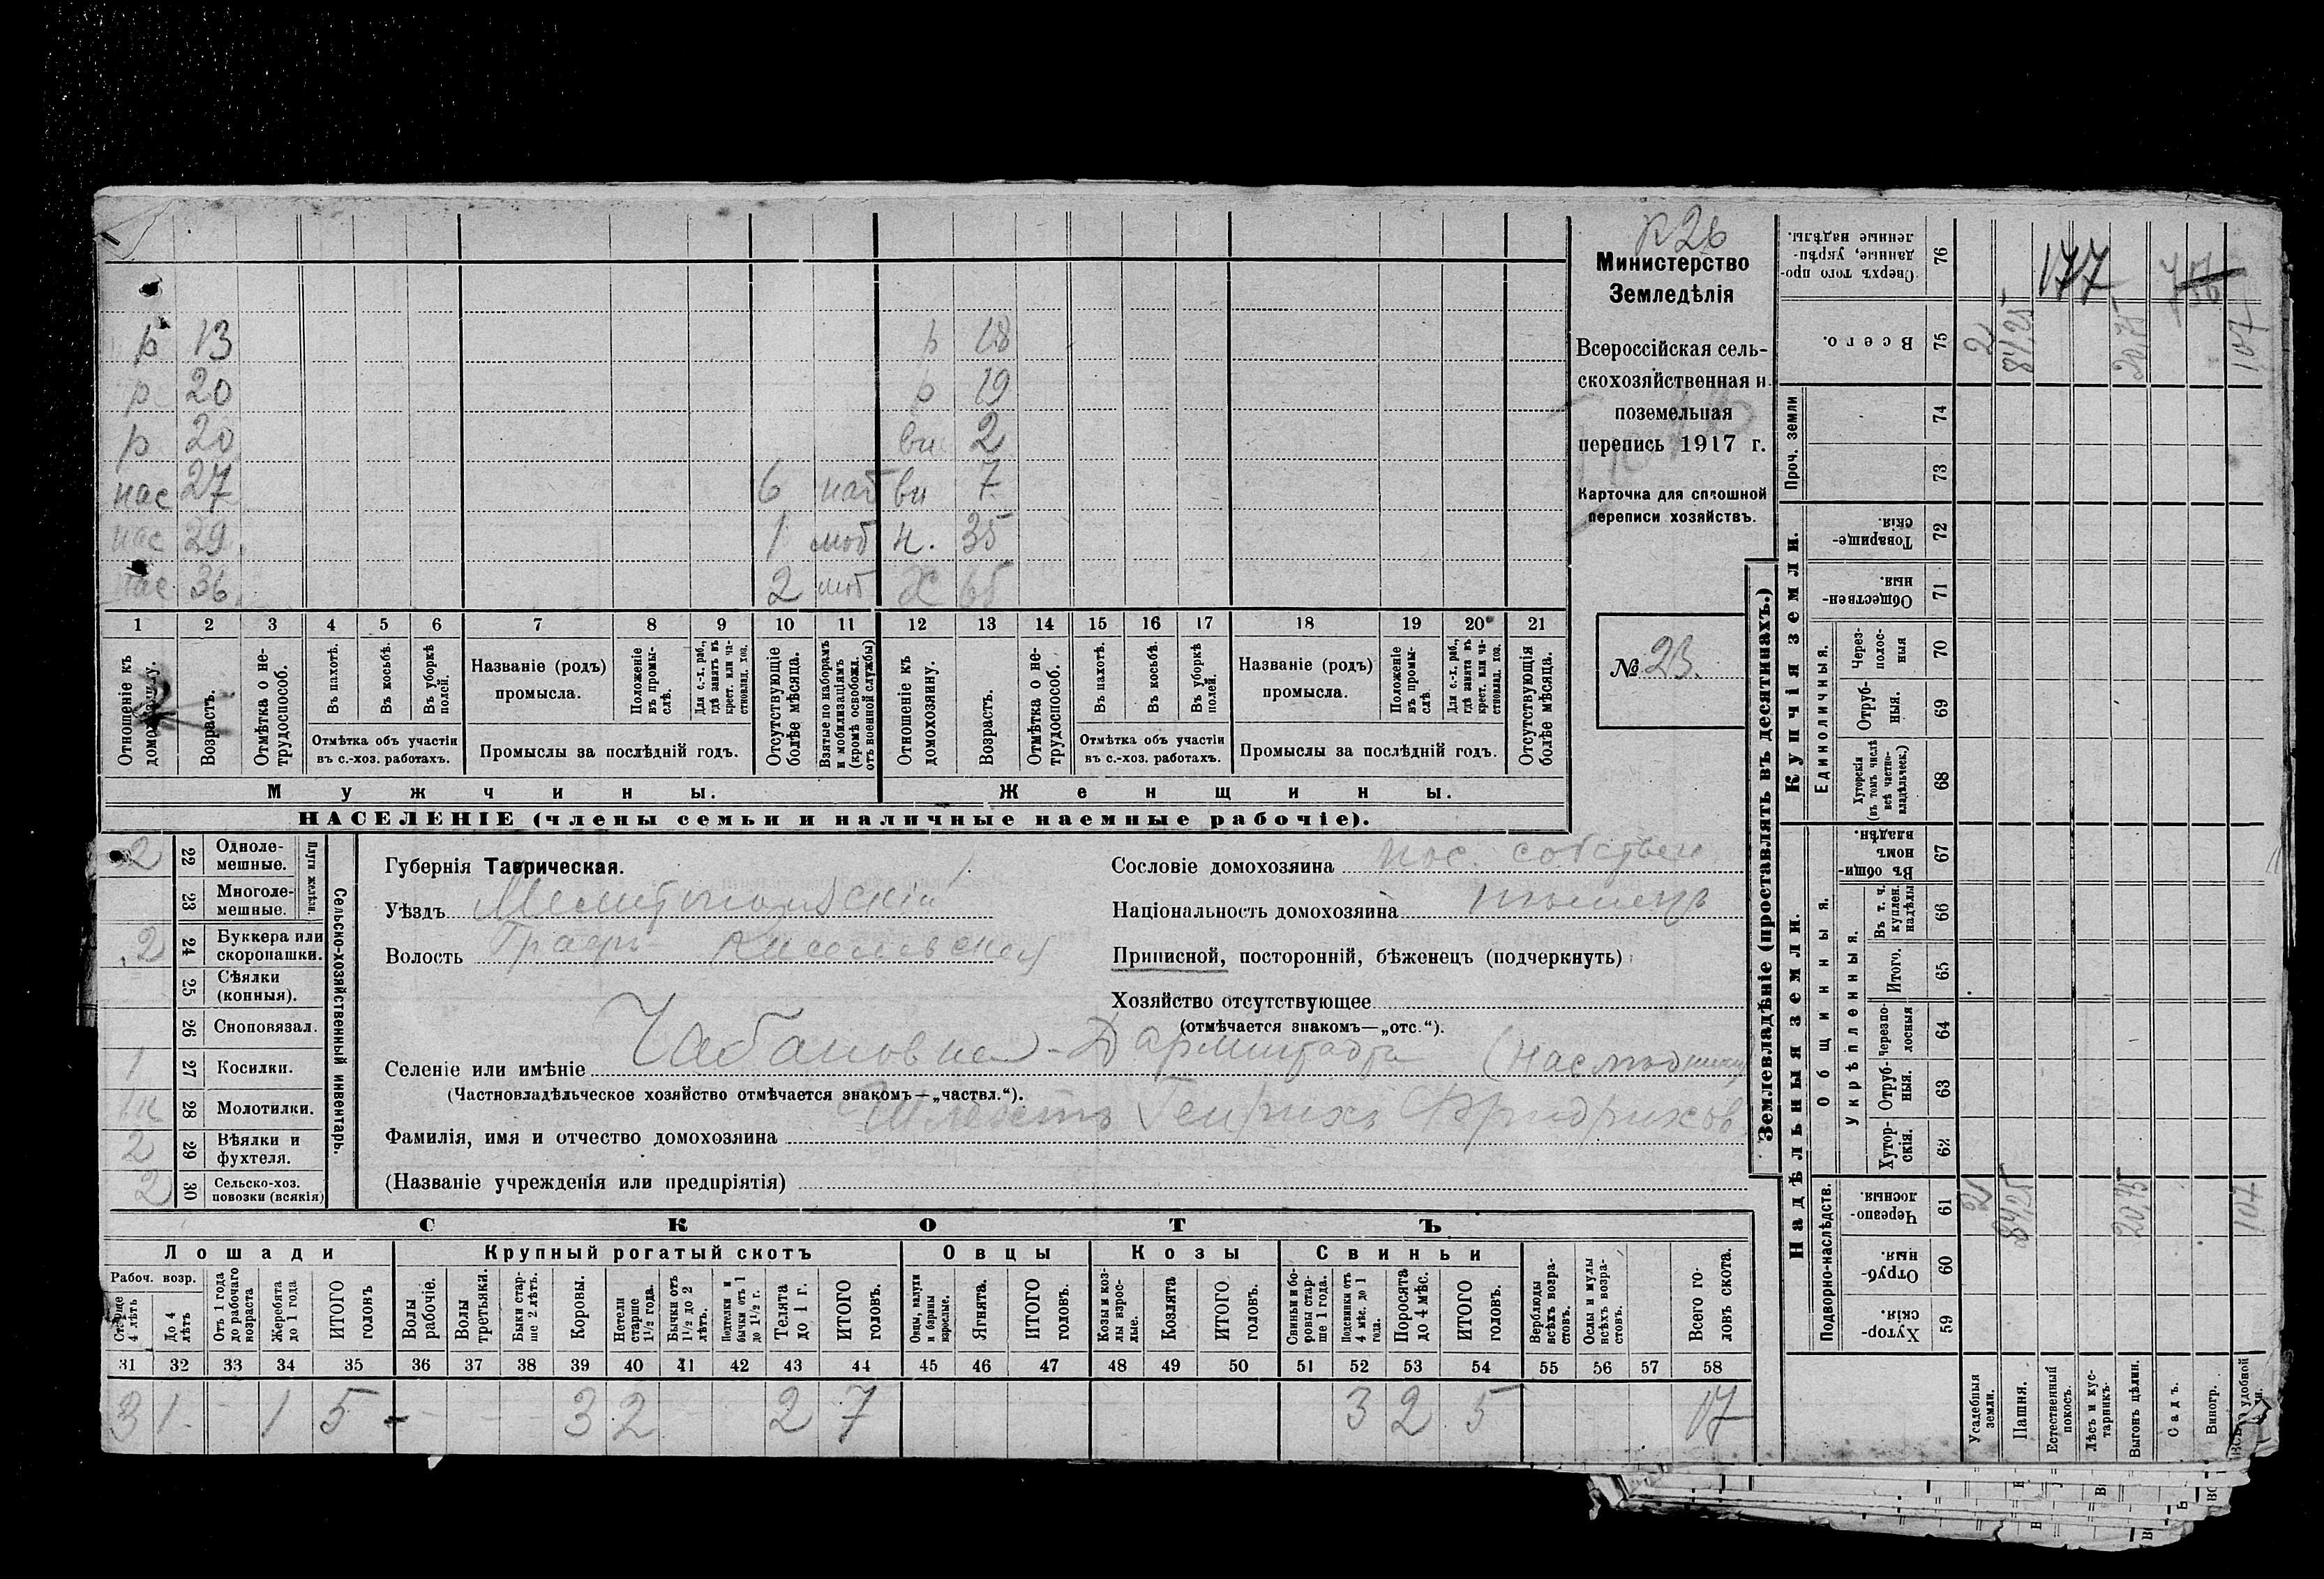 р 26
Министерство
Земледѣлія
Всероссійская сель-
скохозяйственная и
поземельная
перепись 1917 г.
Карточка для сплошной
переписи хозяйствъ.
№ 23.
р 13
р 18
р 20
р 19
р 20
вн 2
нас 27 6 вн 7
нас 29 1 моб н. 35
нас 36 2 моб Х 65
1 2 3 4 5 6 7 8 9 10 11 12 13 14 15 16 17 18 19 20 21
Отношеніе къ домохозяину.
Возрастъ.
Отмѣтка о не-трудоспособ.
Въ пахотѣ.
Въ косьбѣ.
Въ уборкѣ полей.
Отмѣтка объ участіи
въ с.-хоз. работахъ.
Названіе (родъ)
промысла.
Положеніе въ промы-слѣ.
Для с.-х. раб., гдѣ занятъ въ крест. или ча-стновлад. хоз.
Промыслы за послѣдній годъ.
Отсутствующіе болѣе мѣсяца.
Взятые по наборамъ и мобилизаціямъ (кромѣ освобожд. отъ военной службы)
Отношеніе къ домохозяину.
Возрастъ.
Отмѣтка о не-трудоспособ.
Въ пахотѣ.
Въ косьбѣ.
Въ уборкѣ полей.
Отмѣтка объ участіи
въ с.-хоз. работахъ.
Названіе (родъ)
промысла.
Положеніе въ промы-слѣ.
Для с.-х. раб., гдѣ занята въ крест. или ча-стновлад. хоз.
Промыслы за послѣдній годъ.
Отсутствующія болѣе мѣсяца.
Мужчины.
Женщины.
НАСЕЛЕНІЕ (члены семьи и наличные наемные рабочіе).
2 22 Одноле-мешные.
23 Многоле-мешные.
Плуги желѣзн.
2 24 Буккера или скоропашки.
25 Сѣялки (конныя).
26 Сноповязал.
1 27 Косилки.
28 Молотилки.
2 29 Вѣялки и фухтеля.
2 30 Сельско-хоз. повозки (всякія)
Сельско-хозяйственный инвентарь.
Губернія Таврическая.
Уѣздъ Мелитопольскій
Волость Граф. Киселевская
Сословіе домохозяина пос. собствен
Національность домохозяина нѣмецъ
Приписной, посторонній, бѣженецъ (подчеркнуть)
Хозяйство отсутствующее
(отмѣчается знакомъ—„отс.“).
Селеніе или имѣніе Чабановка-Дармштадтъ
(Частновладѣльческое хозяйство отмѣчается знакомъ—„частвл.“).
Фамилія, имя и отчество домохозяина Генрихъ Фридрихов
(Названіе учрежденія или предпріятія)
СКОТЪ
Лошади Крупный рогатый скотъ Овцы Козы Свиньи
Рабоч. возр.
Старше 4 лѣтъ
До 4 лѣтъ
Отъ 1 года до рабочаго возраста
Жеребята до 1 года
ИТОГО головъ
Волы рабочіе.
Волы третьяки.
Быки стар-ше 2 лѣтъ.
Коровы.
Нетели старше 1½ года.
Бычки отъ 1½ до 2 лѣтъ.
Подтелки и бычки отъ 1 до 1½ г.
Телята до 1 г.
ИТОГО головъ.
Овцы, валухи и бараны взрослые.
Ягнята.
ИТОГО головъ.
Козы и коз-лы взрос-лые.
Козлята
ИТОГО головъ.
Свиньи и бо-ровы стар-ше 1 года.
Подсвинки отъ 4 мѣс. до 1 года.
Поросята до 4 мѣс.
ИТОГО головъ.
Верблюды всѣхъ возра-стовъ.
Ослы и мулы всѣхъ возра-стовъ.
Всего го-ловъ скота.
31 32 33 34 35 36 37 38 39 40 41 42 43 44 45 46 47 48 49 50 51 52 53 54 55 56 57 58
3 1 - 1 5 - - - 3 2 2 7 3 2 5 17
Землевладѣніе (проставлять въ десятинахъ.)
Надѣльныя земли.
Купчія земли.
Проч. земли
Подворно-наслѣдств.
Общинныя.
Укрѣпленныя.
Единоличныя.
Сверхъ того про-данные, укрѣп-ленные надѣлы. 76
Всего. 75 2 84,25 20,75 107
177
74
73
Товарище-скія. 72
Обществен-ныя. 71
Через-полос-ныя 70
Отруб-ныя. 69
Хуторскія (въ томъ числѣ всѣ частно-владѣльческ.) 68
Въ общин-номъ владѣн. 67
Въ т. ч. куплен. надѣлы 66
Итого. 65
Черезпо-лосныя 64
Отруб-ныя. 63
Хутор-скія. 62
Черезпо-лосныя. 61 2 84,25 20,75 107
Отруб-ныя. 60
Хутор-скія. 59
Усадебныя земли.
Пашня.
Естественный покосъ.
Лѣсъ и кус-тарникъ.
Выгонъ цѣлин.
Садъ.
Виногр.
удобной